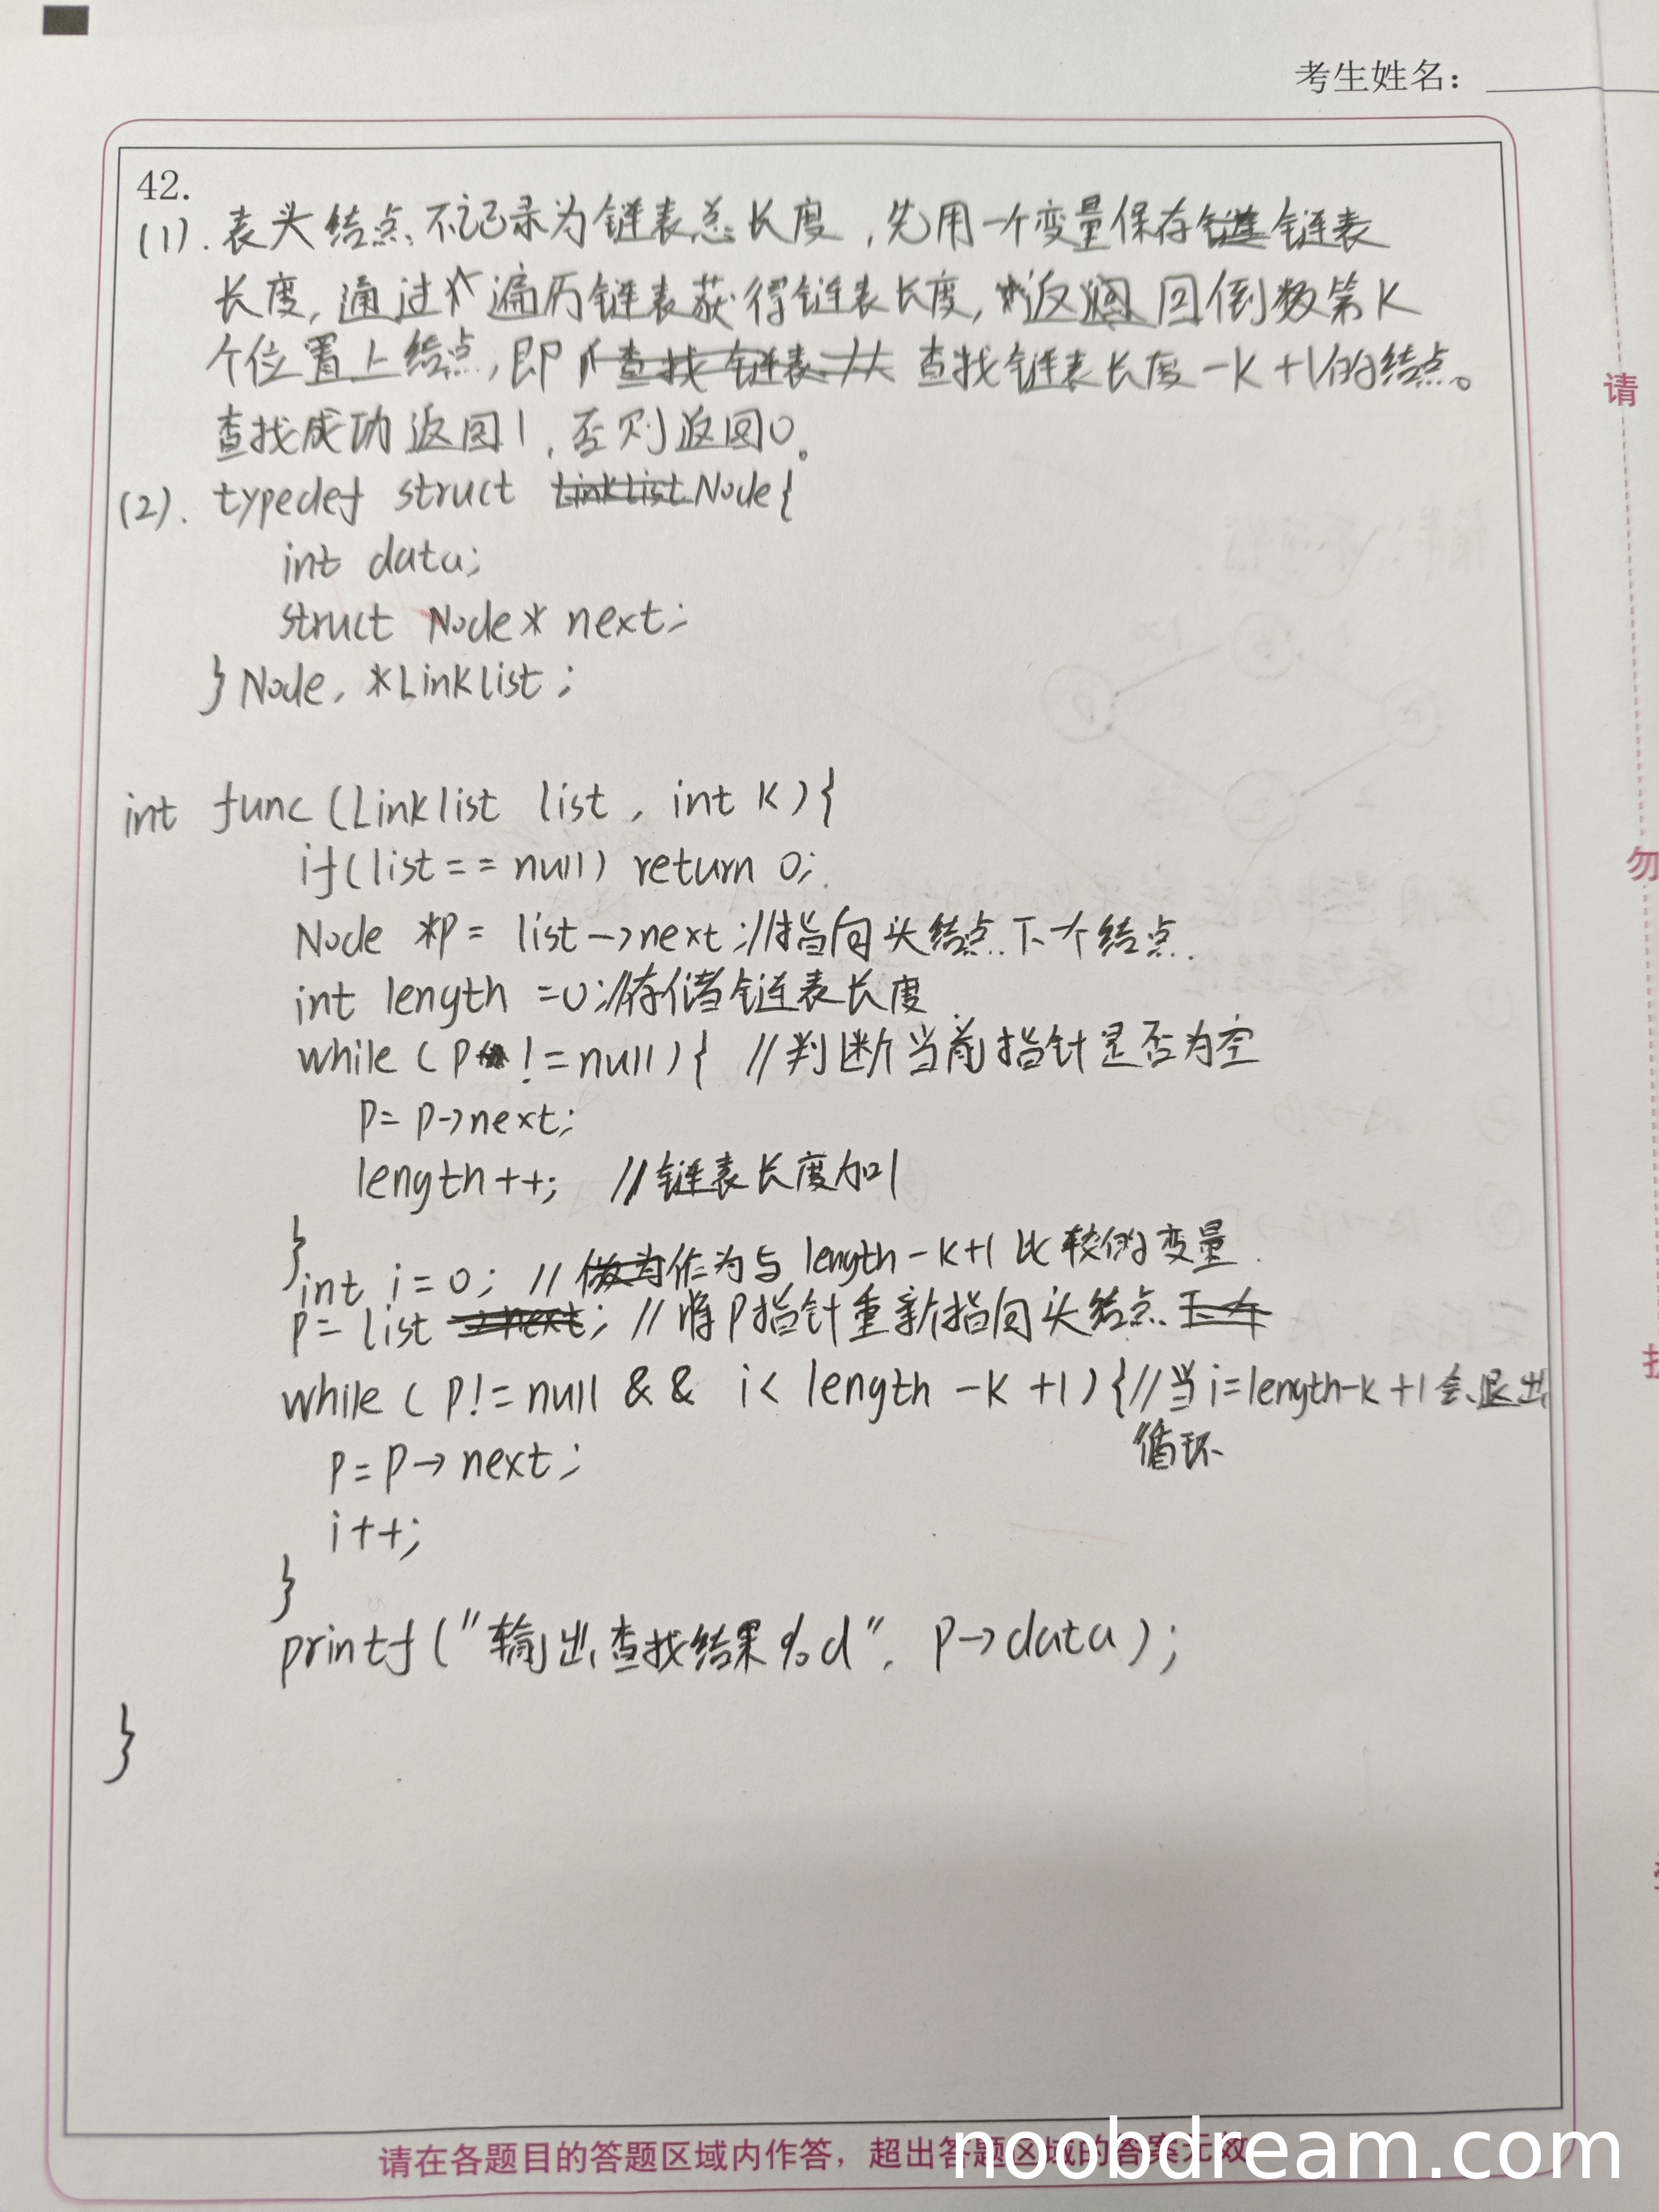 考生姓名：
42.
(1). 表头结点不记录为链表总长度，先用一个变量保存链表
长度，通过遍历链表获得链表长度，返回倒数第K
个位置上结点，即查找链表长度-K+1的结点。
查找成功返回1，否则返回0。
(2). typedef struct Node{
int data;
struct Node* next;
}Node, *Linklist;
int func(Linklist list, int K){
if(list==null) return 0;
Node *p= list->next; //指向头结点下个结点.
int length =0; //存储链表长度
while(p!=null){ //判断当前指针是否为空
p=p->next;
length++; //链表长度加1
}
int i=0; //作为与length-K+1比较的变量.
p=list; //将p指针重新指向头结点
while(p!=null && i< length-K+1){//当i=length-K+1会退出
循环
p=p->next;
i++;
}
printf("输出查找结果%d", p->data);
}
请在各题目的答题区域内作答，超出答题区域的答案无效
请
勿
noobdream.com